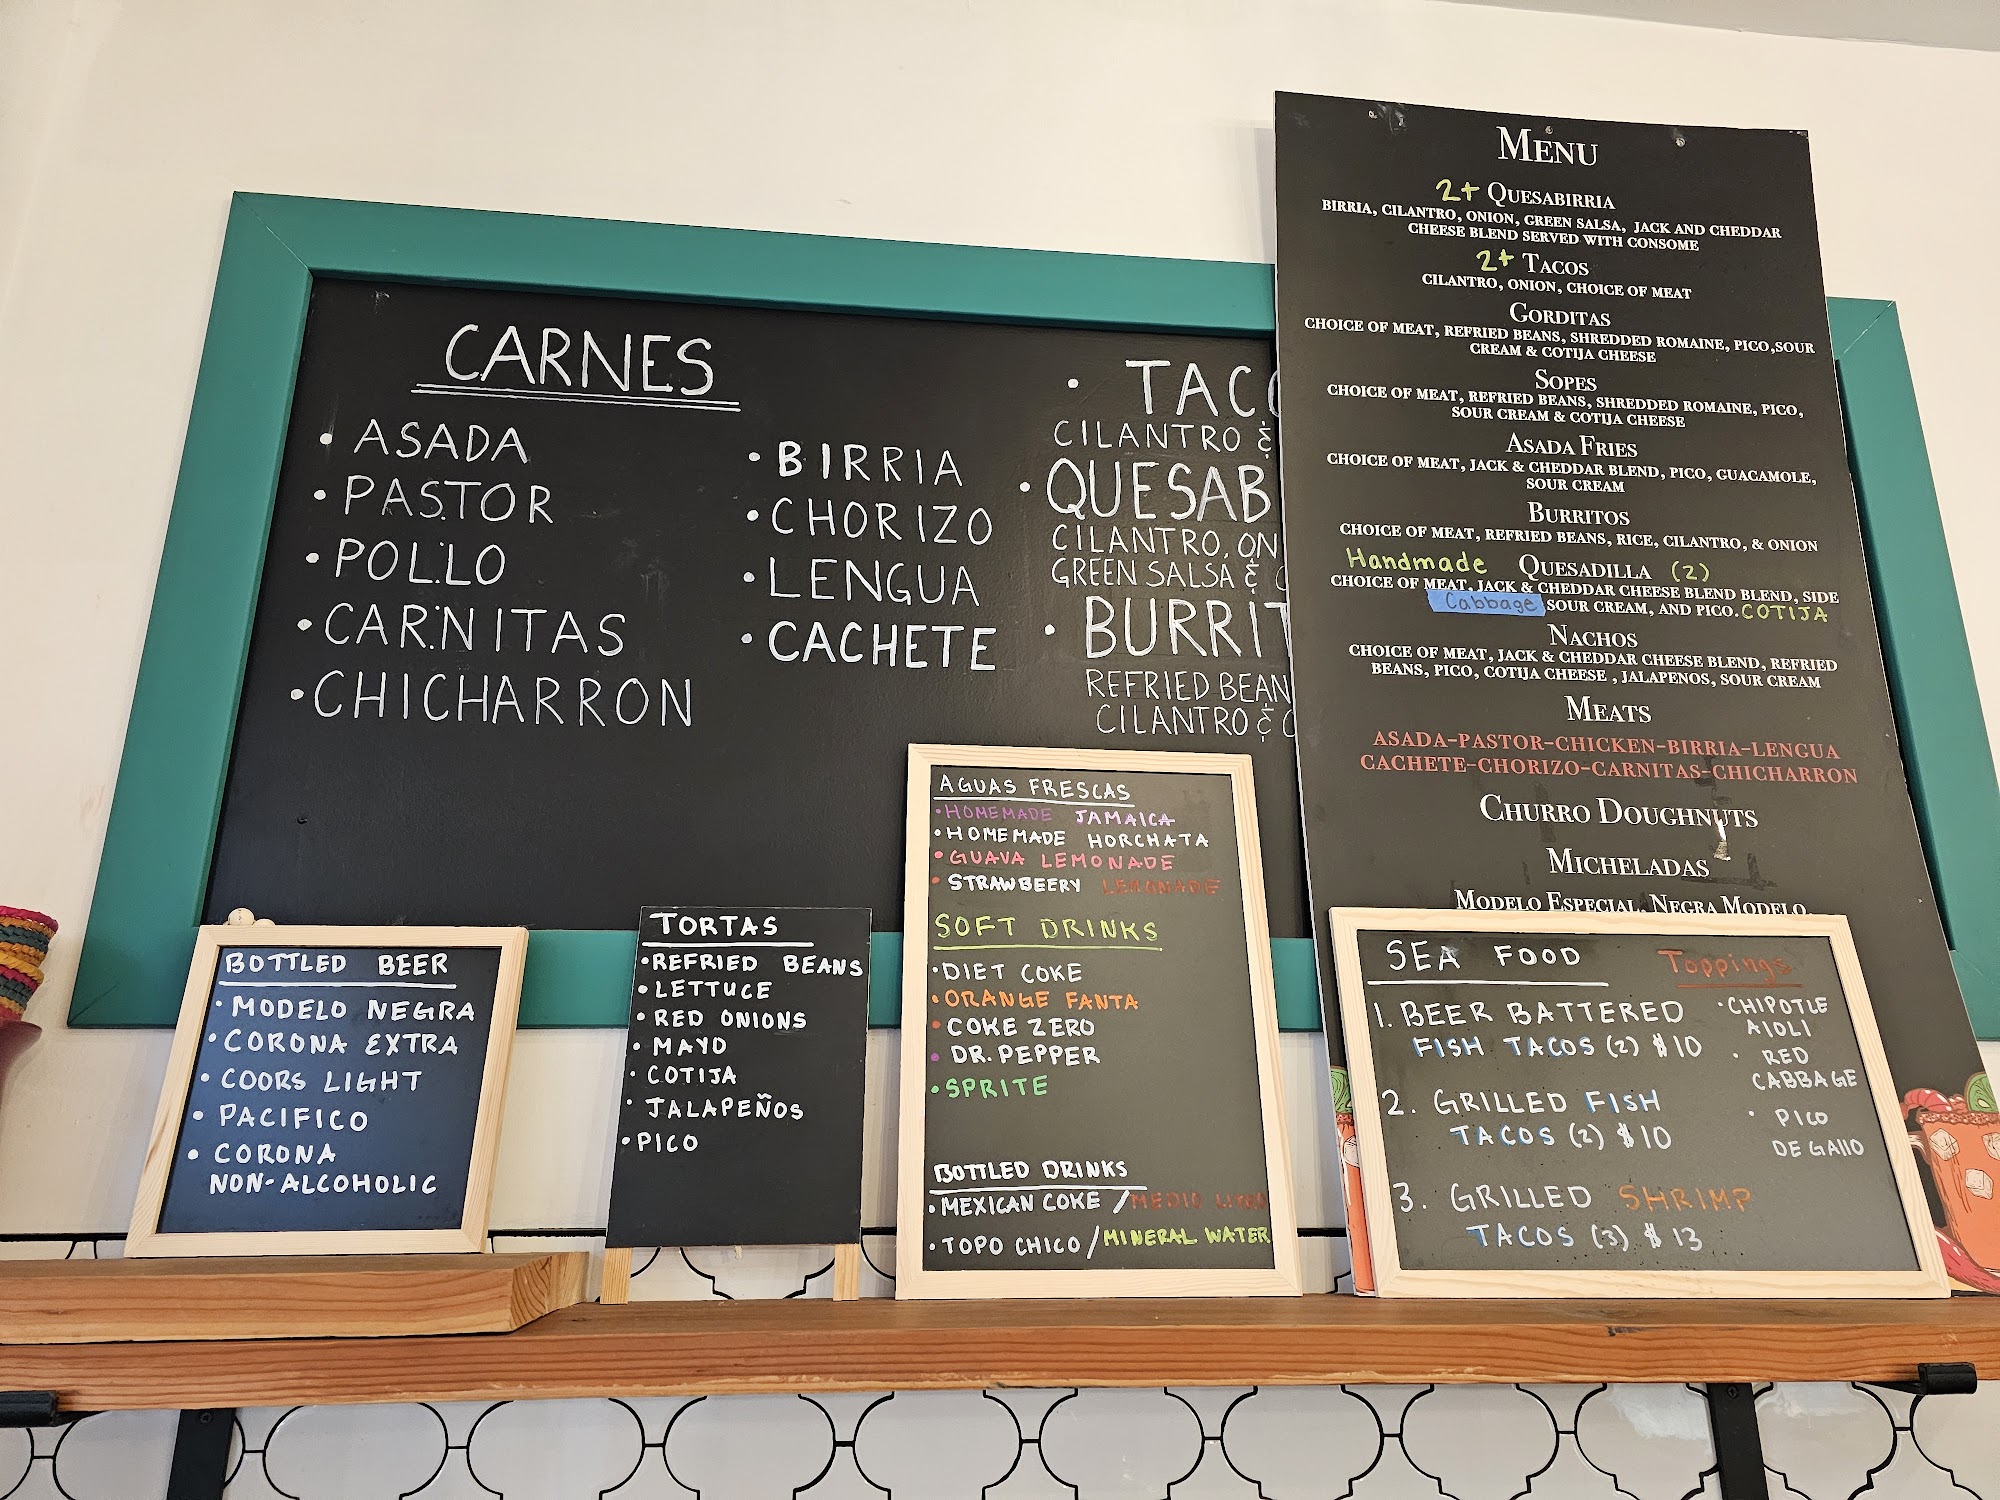 CARNES
• ASADA
• PASTOR
• POLLO
• CARNITAS
• CHICHARRON
• BIRRIA
• CHORIZO
• LENGUA
• CACHETE
• TACO
CILANTRO &
• QUESAB
CILANTRO, ON
GREEN SALSA &
• BURRIT
REFRIED BEAN
CILANTRO &
MENU
2+ QUESABIRRIA
BIRRIA, CILANTRO, ONION, GREEN SALSA, JACK AND CHEDDAR
CHEESE BLEND SERVED WITH CONSOME
2+ TACOS
CILANTRO, ONION, CHOICE OF MEAT
GORDITAS
CHOICE OF MEAT, REFRIED BEANS, SHREDDED ROMAINE, PICO,SOUR
CREAM & COTIJA CHEESE
SOPES
CHOICE OF MEAT, REFRIED BEANS, SHREDDED ROMAINE, PICO,
SOUR CREAM & COTIJA CHEESE
ASADA FRIES
CHOICE OF MEAT, JACK & CHEDDAR BLEND, PICO, GUACAMOLE,
SOUR CREAM
BURRITOS
CHOICE OF MEAT, REFRIED BEANS, RICE, CILANTRO, & ONION
Handmade QUESADILLA (2)
CHOICE OF MEAT, JACK & CHEDDAR CHEESE BLEND BLEND, SIDE
Cabbage SOUR CREAM, AND PICO. COTIJA
NACHOS
CHOICE OF MEAT, JACK & CHEDDAR CHEESE BLEND, REFRIED
BEANS, PICO, COTIJA CHEESE , JALAPENOS, SOUR CREAM
MEATS
ASADA-PASTOR-CHICKEN-BIRRIA-LENGUA
CACHETE-CHORIZO-CARNITAS-CHICHARRON
CHURRO DOUGHNUTS
MICHELADAS
MODELO ESPECIAL, NEGRA MODELO,
BOTTLED BEER
• MODELO NEGRA
• CORONA EXTRA
• COORS LIGHT
• PACIFICO
• CORONA
NON-ALCOHOLIC
TORTAS
• REFRIED BEANS
• LETTUCE
• RED ONIONS
• MAYO
• COTIJA
• JALAPEÑOS
• PICO
AGUAS FRESCAS
• HOMEMADE JAMAICA
• HOMEMADE HORCHATA
• GUAVA LEMONADE
• STRAWBEERY LEMONADE
SOFT DRINKS
• DIET COKE
• ORANGE FANTA
• COKE ZERO
• DR. PEPPER
• SPRITE
BOTTLED DRINKS
• MEXICAN COKE / MEDIO
• TOPO CHICO / MINERAL WATER
SEA FOOD
1. BEER BATTERED
FISH TACOS (2) $10
2. GRILLED FISH
TACOS (2) $10
3. GRILLED SHRIMP
TACOS (3) $13
Toppings
• CHIPOTLE
AIOLI
• RED
CABBAGE
• PICO
DE GAllO